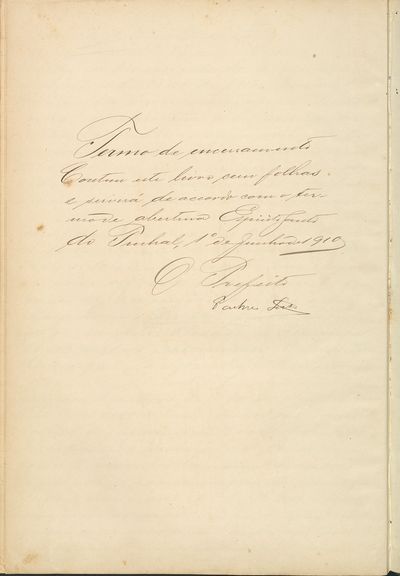 Termo de encerramento
Contem este livro cem folhas
e servirá de accordo com o ter-
mo de abertura Espirito Santo
do Pinhal, 1º de Junho de 1910
O Prefeito